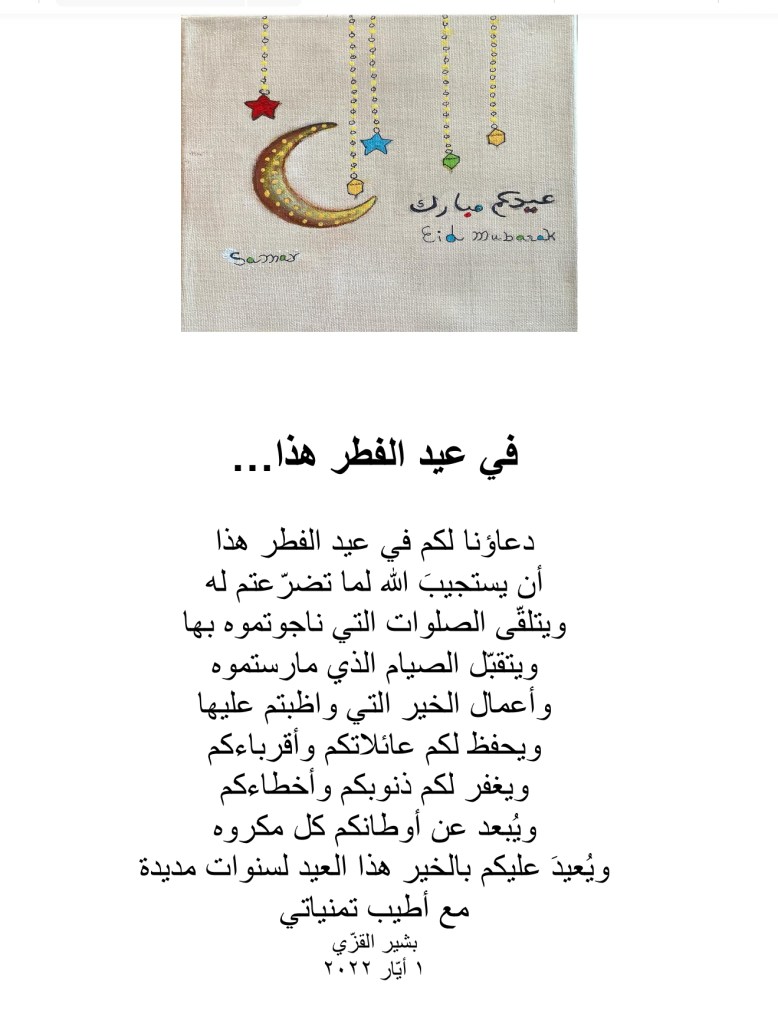 عيدكم مبارك
Eid Mubarak
Samar
في عيد الفطر هذا...
دعاؤنا لكم في عيد الفطر هذا
أن يستجيبَ الله لما تضرّعتم له
ويتلقّى الصلوات التي ناجوتموه بها
ويتقبّل الصيام الذي مارستموه
وأعمال الخير التي واظبتم عليها
ويحفظ لكم عائلاتكم وأقرباءكم
ويغفر لكم ذنوبكم وأخطاءكم
ويُبعد عن أوطانكم كل مكروه
ويُعيدَ عليكم بالخير هذا العيد لسنوات مديدة
مع أطيب تمنياتي
بشير القزّي
١ أيّار ٢٠٢٢